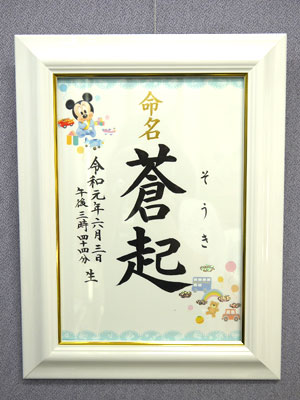 命名
そうき
蒼起
令和元年六月三日
午後三時四十四分 生